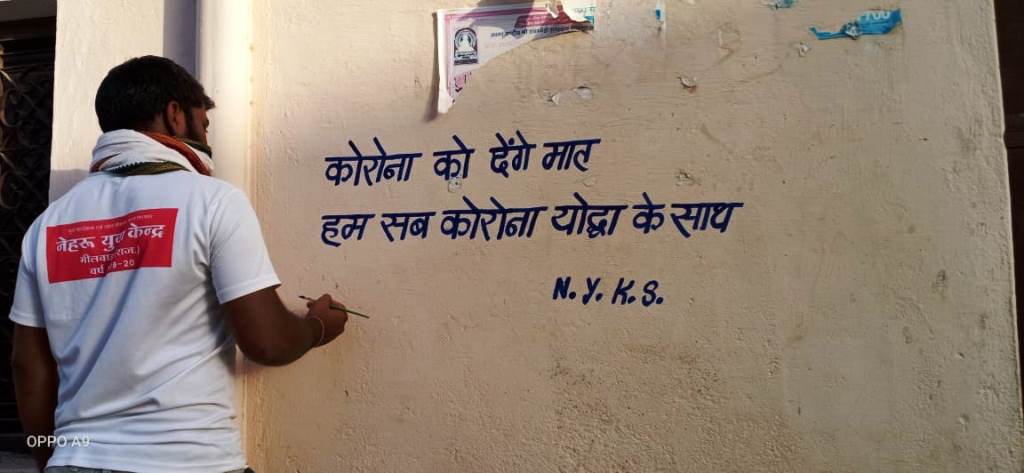 कोरोना को देंगे मात
हम सब कोरोना योद्धा के साथ
N. Y. K. S.
नेहरू युवा केन्द्र
वर्ष
-20
700
OPPO A9